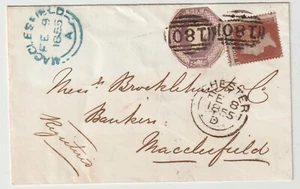 MACCLESFIELD
FE 9
1855
A
180
180
CHESTER
FE 8
1855
Messrs Brocklehurst & Co
Bankers
Macclesfield
Registered